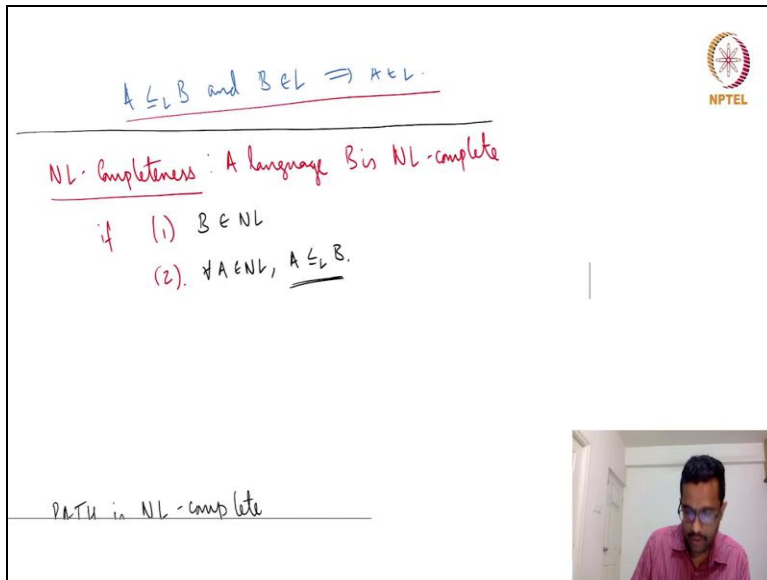 A ≤_L B and B ∈ L ⇒ A ∈ L.
NPTEL
NL-Completeness : A language B is NL-complete
if (1) B ∈ NL
(2). ∀ A ∈ NL, A ≤_L B.
PATH is NL-complete